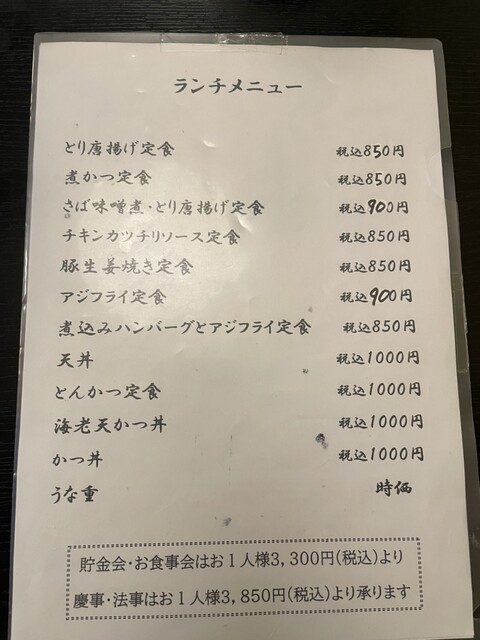 ランチメニュー
とり唐揚げ定食 税込850円
煮かつ定食 税込850円
さば味噌煮・とり唐揚げ定食 税込900円
チキンカツチリソース定食 税込850円
豚生姜焼き定食 税込850円
アジフライ定食 税込900円
煮込みハンバーグとアジフライ定食 税込850円
天丼 税込1000円
とんかつ定食 税込1000円
海老天かつ丼 税込1000円
かつ丼 税込1000円
うな重 時価
貯金会・お食事会はお1人様3,300円(税込)より
慶事・法事はお1人様3,850円(税込)より承ります